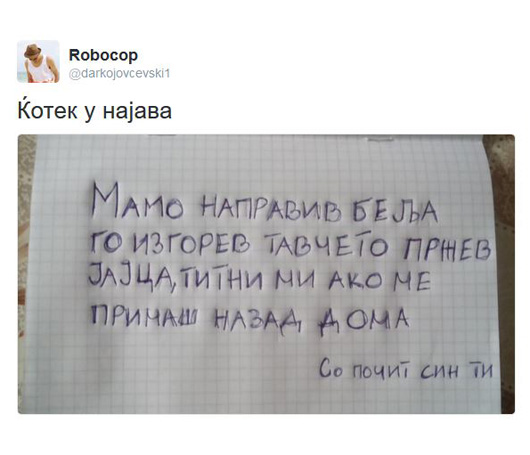 Robocop
@darkojovcevski1
Ќотек у најава
МАМО НАПРАВИВ БЕЉА
ГО ИЗГОРЕВ ТАВЧЕТО ПРЖЕВ
ЈАЈЦА, ТИТНИ МИ АКО МЕ
ПРИМАШ НАЗАД ДОМА
Со почит син ти